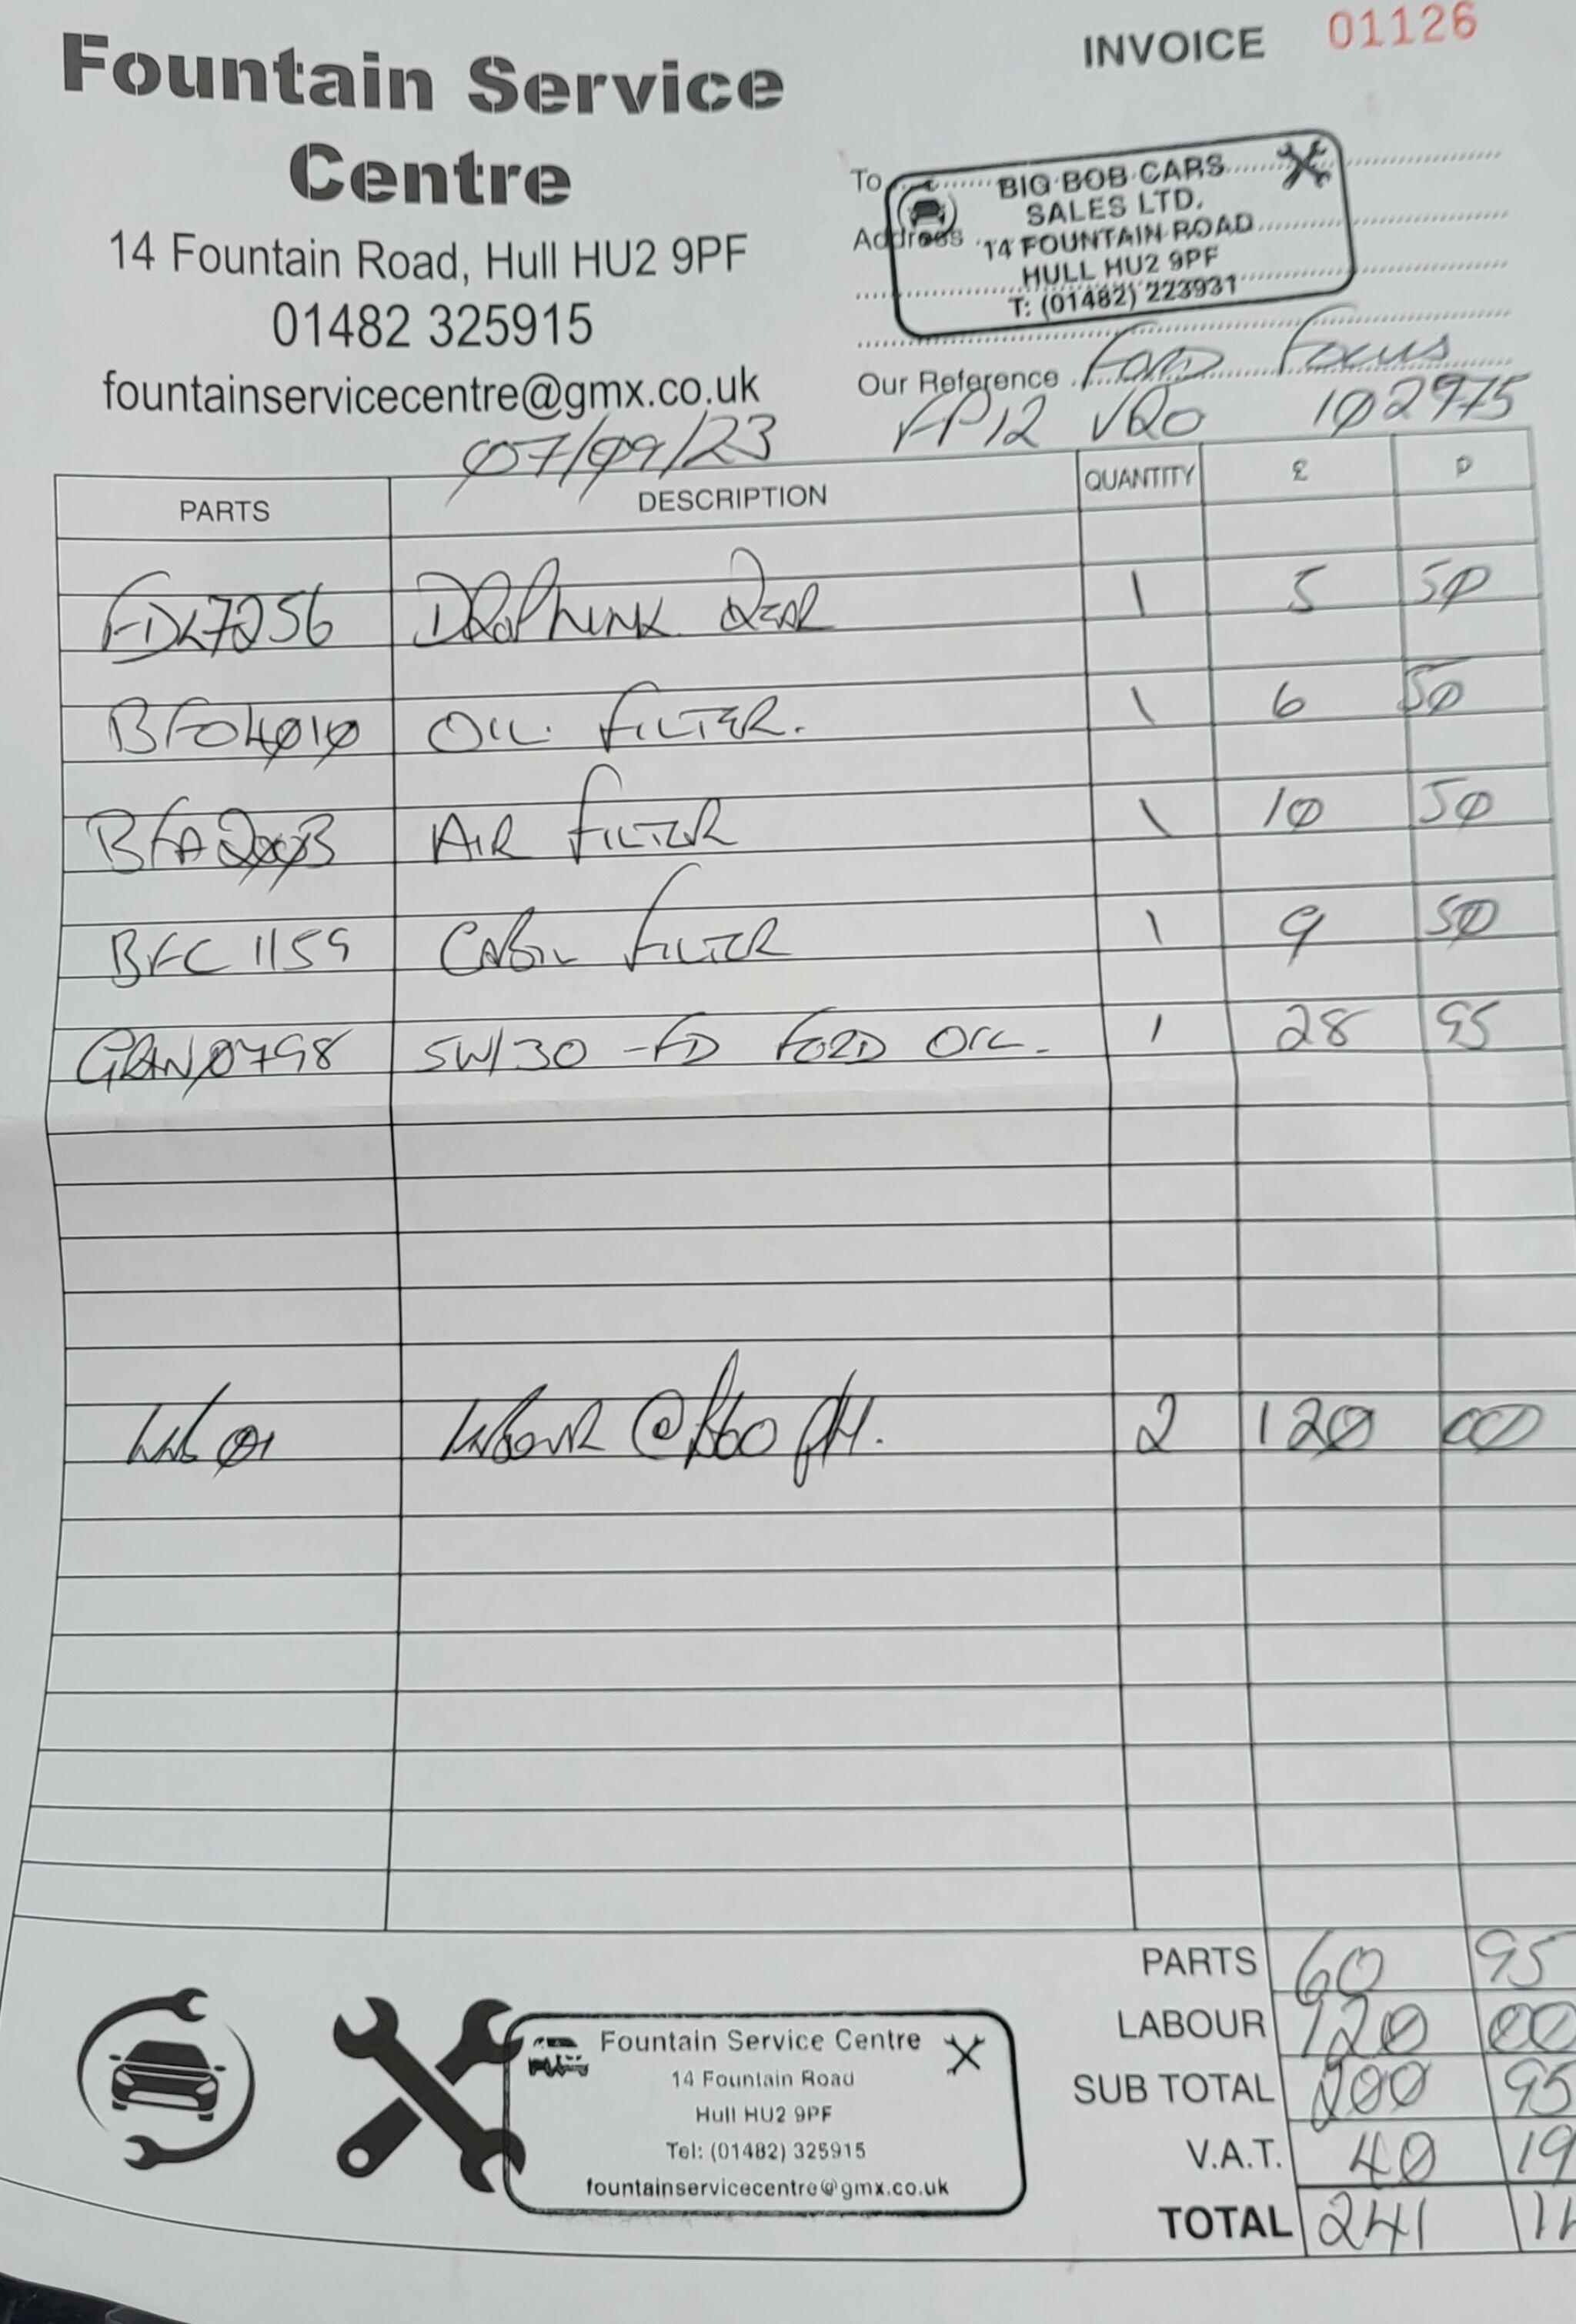 INVOICE 01126
Fountain Service
Centre
14 Fountain Road, Hull HU2 9PF
01482 325915
fountainservicecentre@gmx.co.uk
To
Address
BIG BOB CARS
SALES LTD.
14 FOUNTAIN ROAD
HULL HU2 9PF
T: (01482) 223931
Our Reference FORD Focus
FP12 VRO 102975
07/09/23
PARTS DESCRIPTION QUANTITY £ P
FDL7256 DROPLINK REAR 1 5 50
BFO4010 OIL FILTER. 1 6 50
BFA2003 AIR FILTER 1 10 50
BFC 1159 CABIN FILTER 1 9 50
GRAN0798 5W/30 -FD FORD OIL. 1 28 95
LAB 01 LABOUR @ £60 PH. 2 120 00
PARTS 60 95
LABOUR 120 00
SUB TOTAL 200 95
V.A.T. 40 19
TOTAL 241
Fountain Service Centre
14 Fountain Road
Hull HU2 9PF
Tel: (01482) 325915
fountainservicecentre@gmx.co.uk